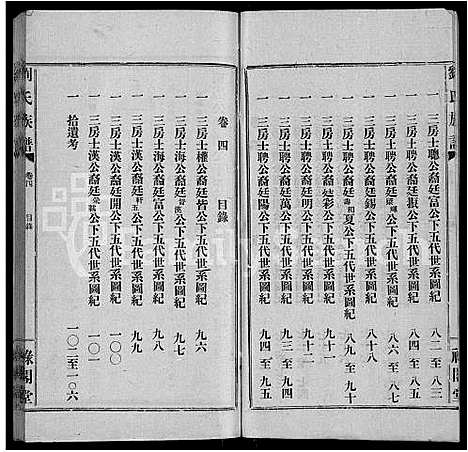 劉氏族譜
一 三房士聰公裔廷富公下五代世系圖紀 八二至八三
一 三房士聘公裔廷振公下五代世系圖紀 八四至八五
一 三房士聘公裔廷公下五代世系圖紀 八六至八七
一 三房士聘公裔廷錫公下五代世系圖紀 八七至八八
一 三房士聘公裔廷和壽夏公下五代世系圖紀 八九至九十
一 三房士聘公裔廷彩公下五代世系圖紀 九十一
一 三房士聘公裔廷明公下五代世系圖紀 九十二
一 三房士聘公裔廷萬公下五代世系圖紀 九三
一 三房士聘公裔扈陽公下五代世系圖紀 九四至九五
祿閣堂
卷四 目錄
一 三房士權公裔廷皆公下五代世系圖紀 九六
一 三房士海公裔廷公下五代世系圖紀 九七
一 三房士海公裔廷富公下五代世系圖紀 九八
一 三房士漢公裔廷軒五公下五代世系圖紀 九九
一 三房士漢公裔廷開公下五代世系圖紀 一〇〇
一 三房士漢公裔廷公下五代世系圖紀 一〇一
一 拾遺考 一〇二至一〇六
劉氏族譜 卷四 目錄
祿閣堂